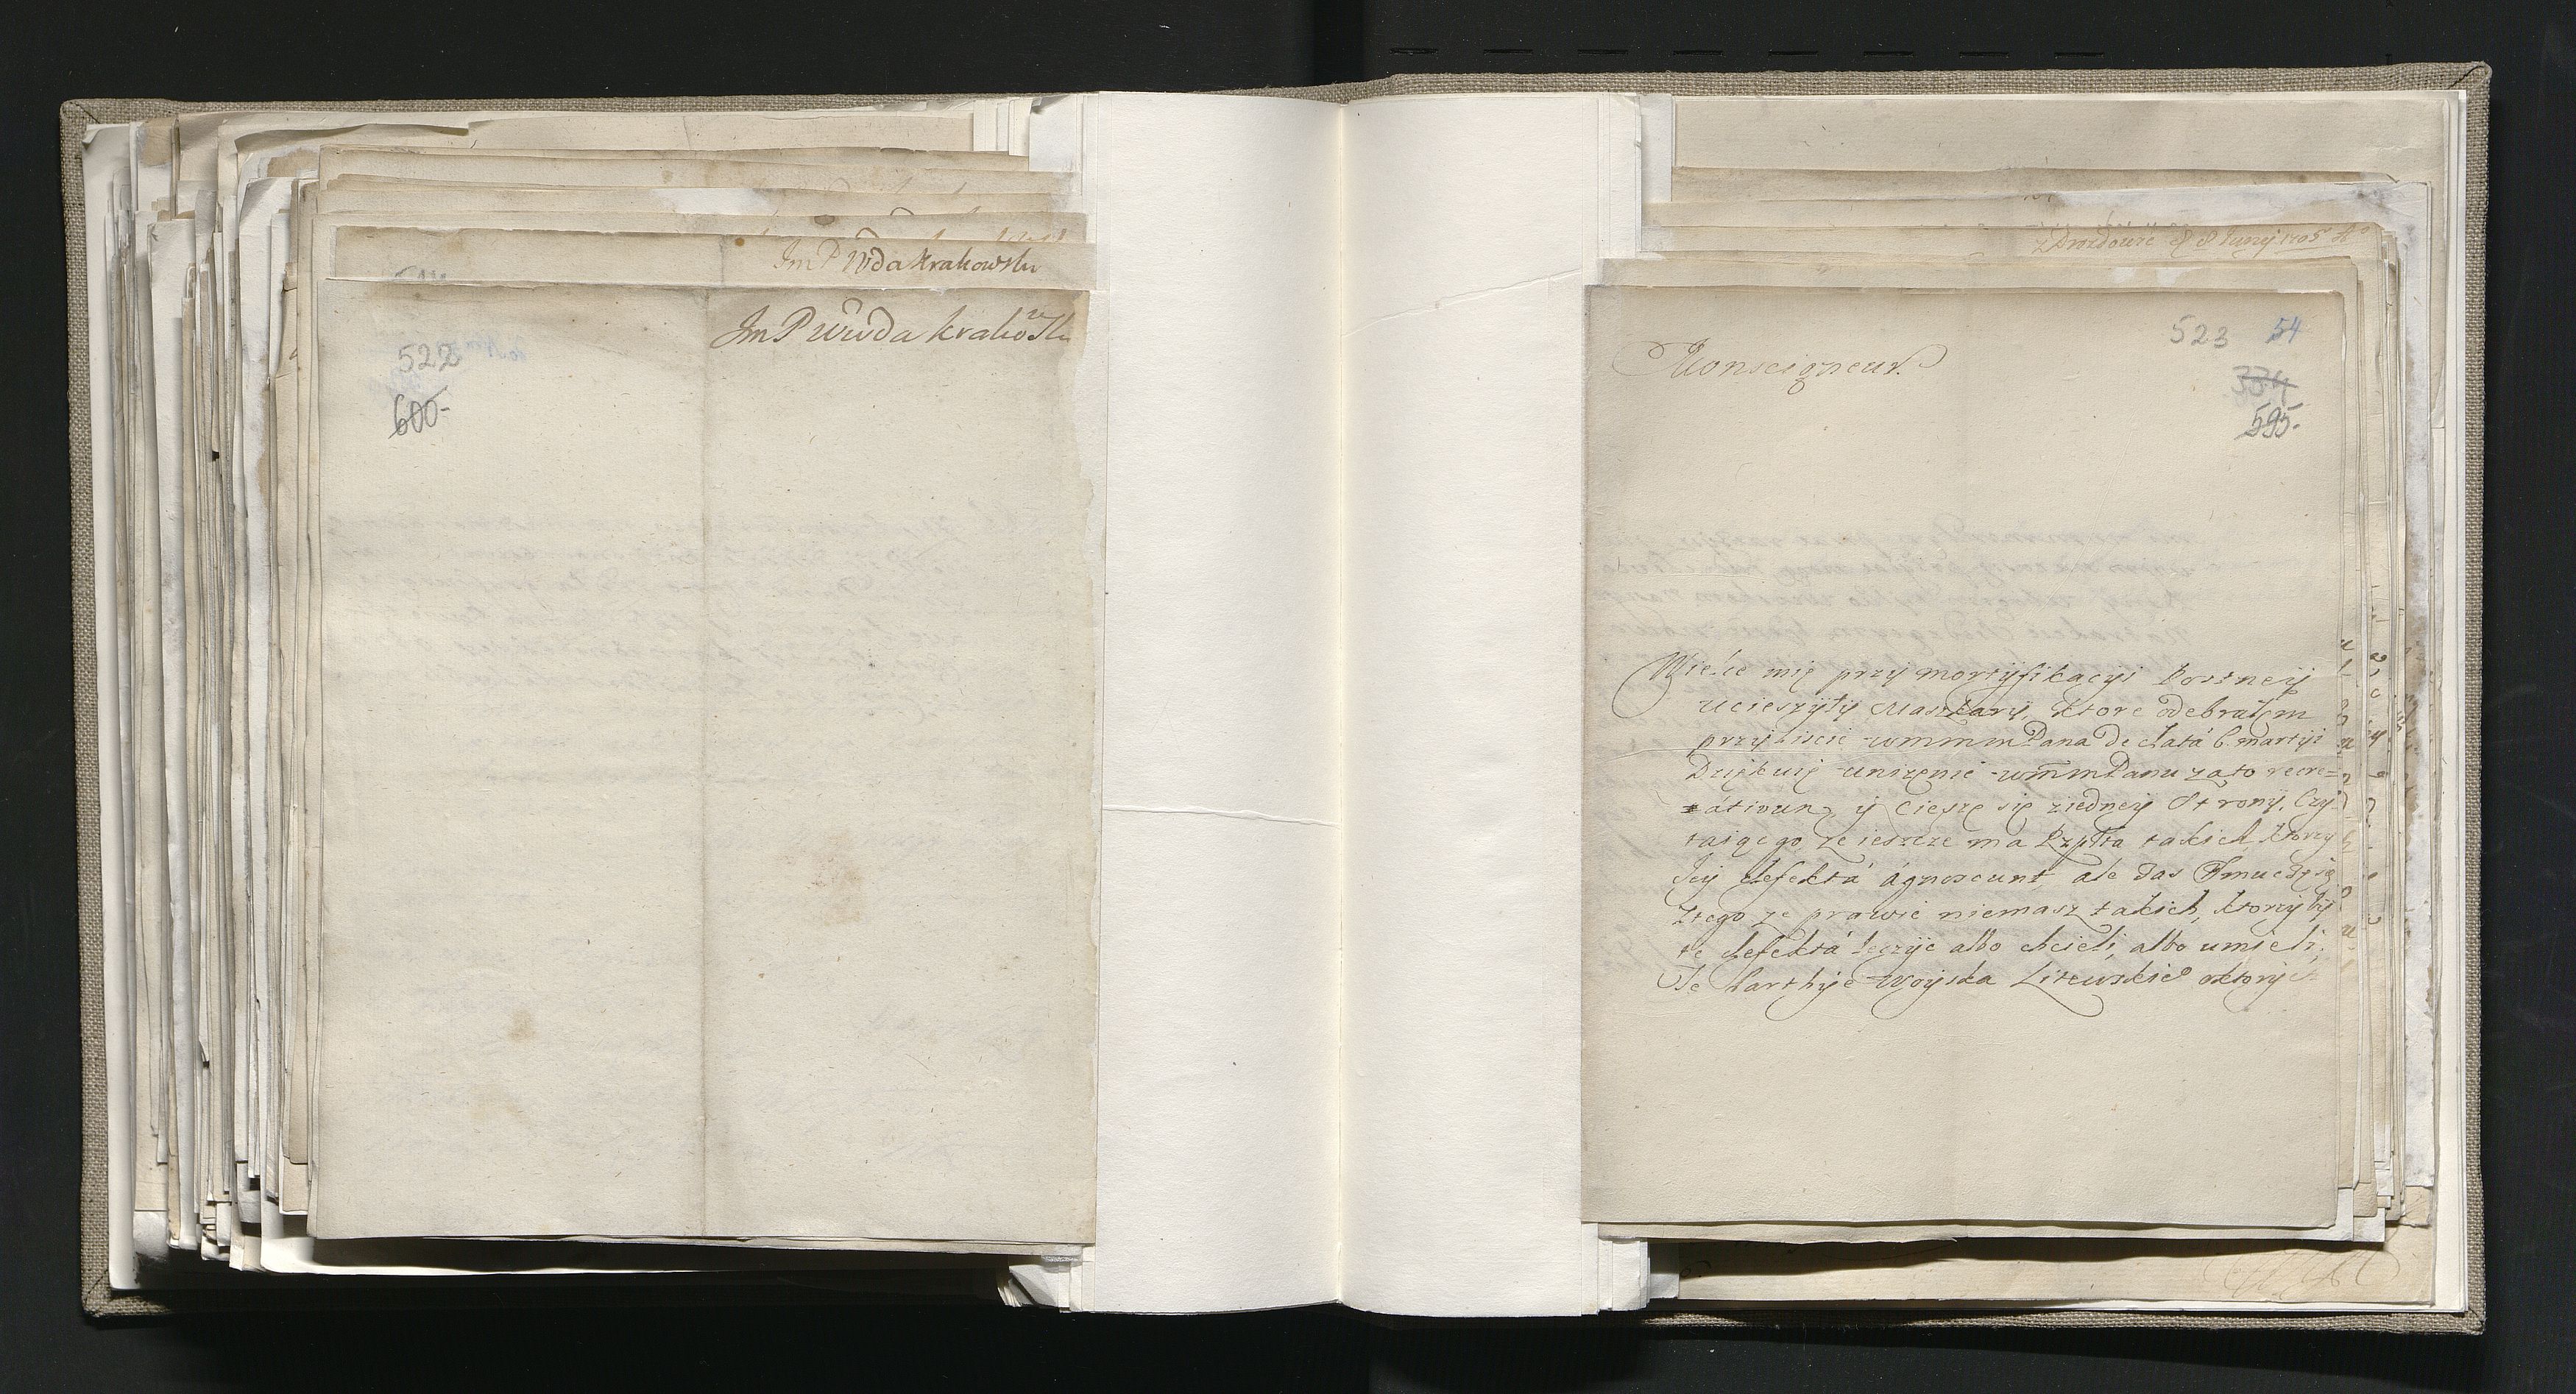 Im P Wda Krakowski
Im P Wwda krakowski
522
600-
z Drozdowic d 8 Junij 1705 Ao
523 54
Monseigneur.
334
595-
Wielce mię przy mortyfikacyi Postney
ucieszyły Maszkary, ktore odebrałem
przy liscie wmmmPana de data 6 martij
Dziękuię unizenie wmmPanu za to recre=
ativum, y cieszę się ziedney Strony, Czy
taiącego, ze ieszcze ma Rzplta takich, ktorzy
Iey defekta agnoscunt, ale zas smucę się
Ztego ze prawie niemasz takich, ktorzy by
te defekta leczyc albo chcieli, albo umieli,
Te Parthye Woyska Litewskie o ktorych